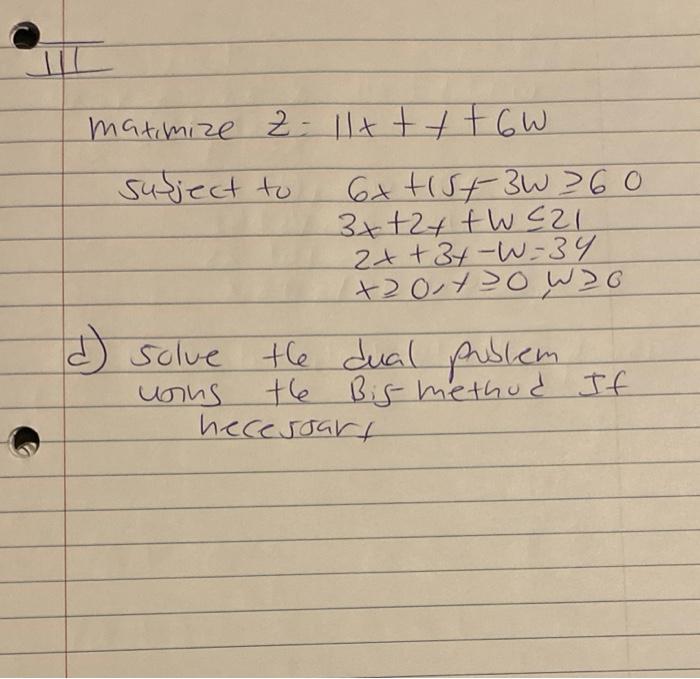 III
maximize z = 11x + y + 6w
subject to 6x + 15y - 3w ≥ 60
3x + 2y + w ≤ 21
2x + 3y - w = 34
x ≥ 0, y ≥ 0, w ≥ 0
d) solve the dual problem
using the Big-method If
necessary